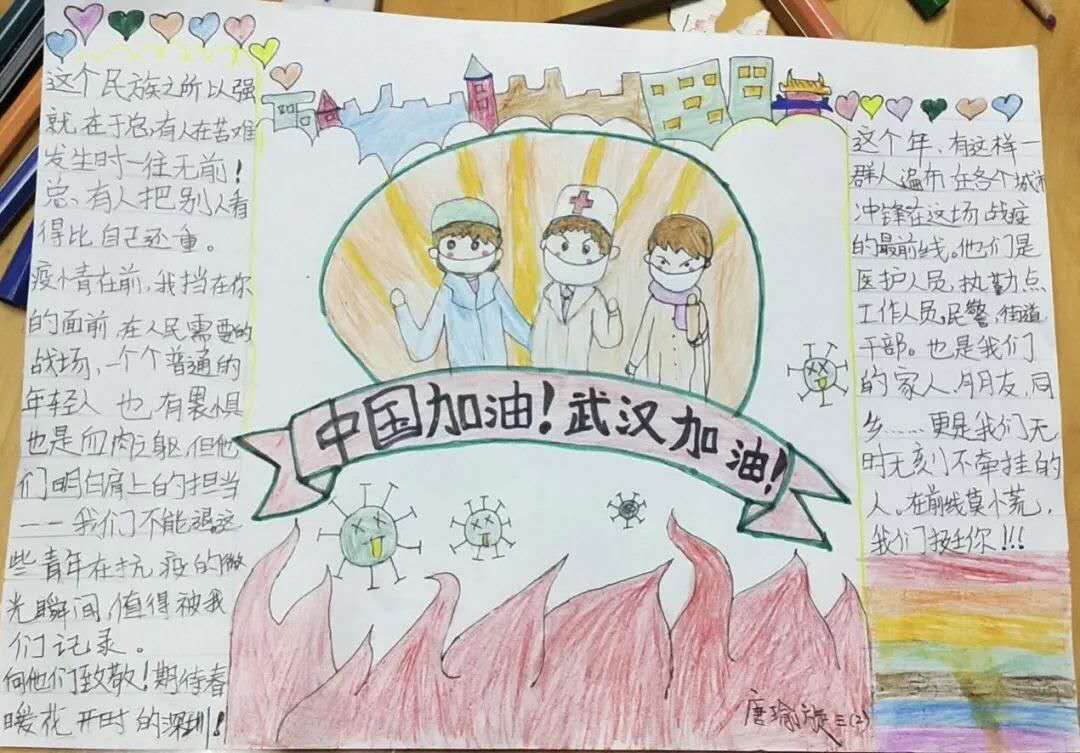 这个民族之所以强
就在于总有人在苦难
发生时一往无前!
总有人把别人看
得比自己还重。
疫情在前,我挡在你
的面前,在人民需要的
战场,一个个普通的
年轻人也有畏惧
也是血肉之躯,但他
们明白肩上的担当
——我们不能退。这
些青年在抗疫的微
光瞬间,值得被我
们记录。
向他们致敬!期待春
暖花开时的深圳!
中国加油!武汉加油!
这个年,有这样一
群人遍布在各个城市
冲锋在这场战疫
的最前线。他们是
医护人员,执勤点
工作人员,民警,街道
干部。也是我们
的家人,朋友,同
乡……更是我们无
时无刻不牵挂的
人。在前线莫小荒,
我们挺你!!!
唐瑜旋 三(2)